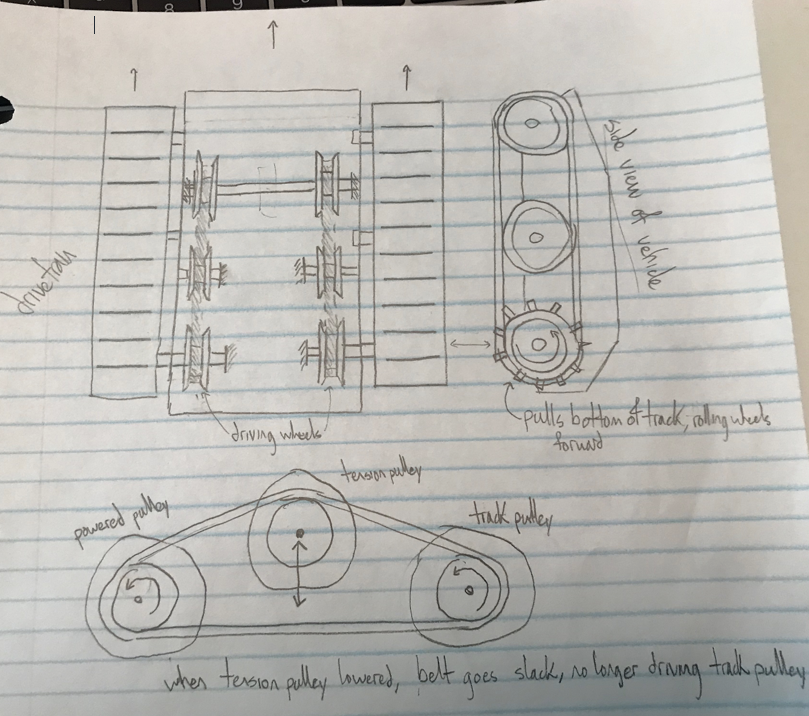 drivetrain
side view of vehicle
driving wheels
pulls bottom of track, rolling wheels
forward
tension pulley
powered pulley
track pulley
when tension pulley lowered, belt goes slack, no longer driving track pulley